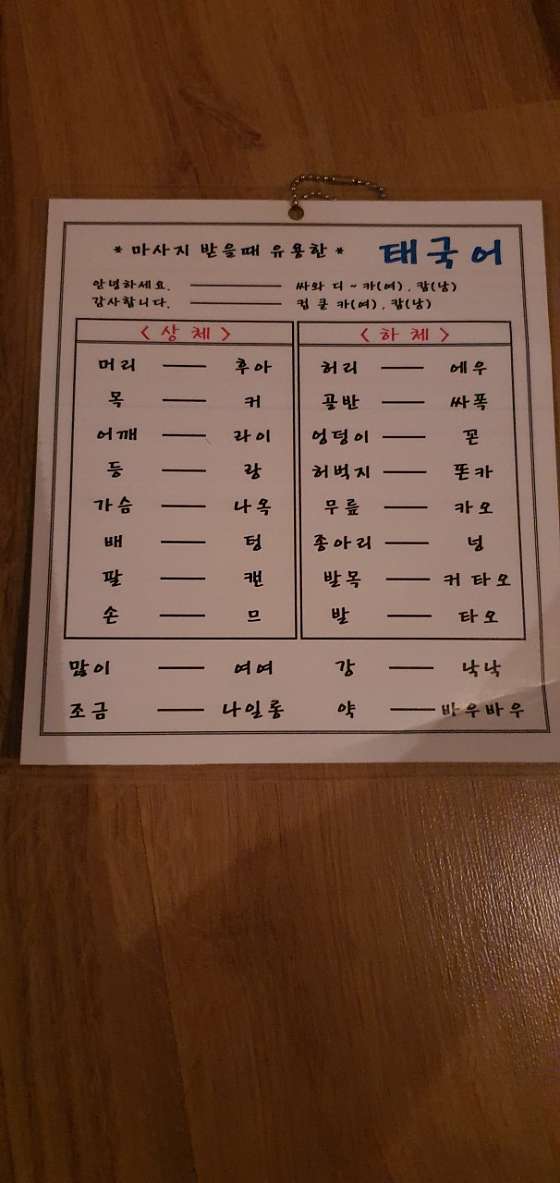 * 마사지 받을때 유용한 * 태국어
안녕하세요. ——— 싸와 디 ~ 카(여), 캅(남)
감사합니다. ——— 컵 쿤 카(여), 캅(남)
< 상 체 >
머리 — 후아
목 — 커
어깨 — 라이
등 — 랑
가슴 — 나옥
배 — 텅
팔 — 캔
손 — 므
< 하 체 >
허리 — 에우
골반 — 싸폭
엉덩이 — 꼰
허벅지 — 똔카
무릎 — 카오
종아리 — 넝
발목 — 커 타오
발 — 타오
많이 — 여여 강 — 낙낙
조금 — 나일롱 약 — 바우바우